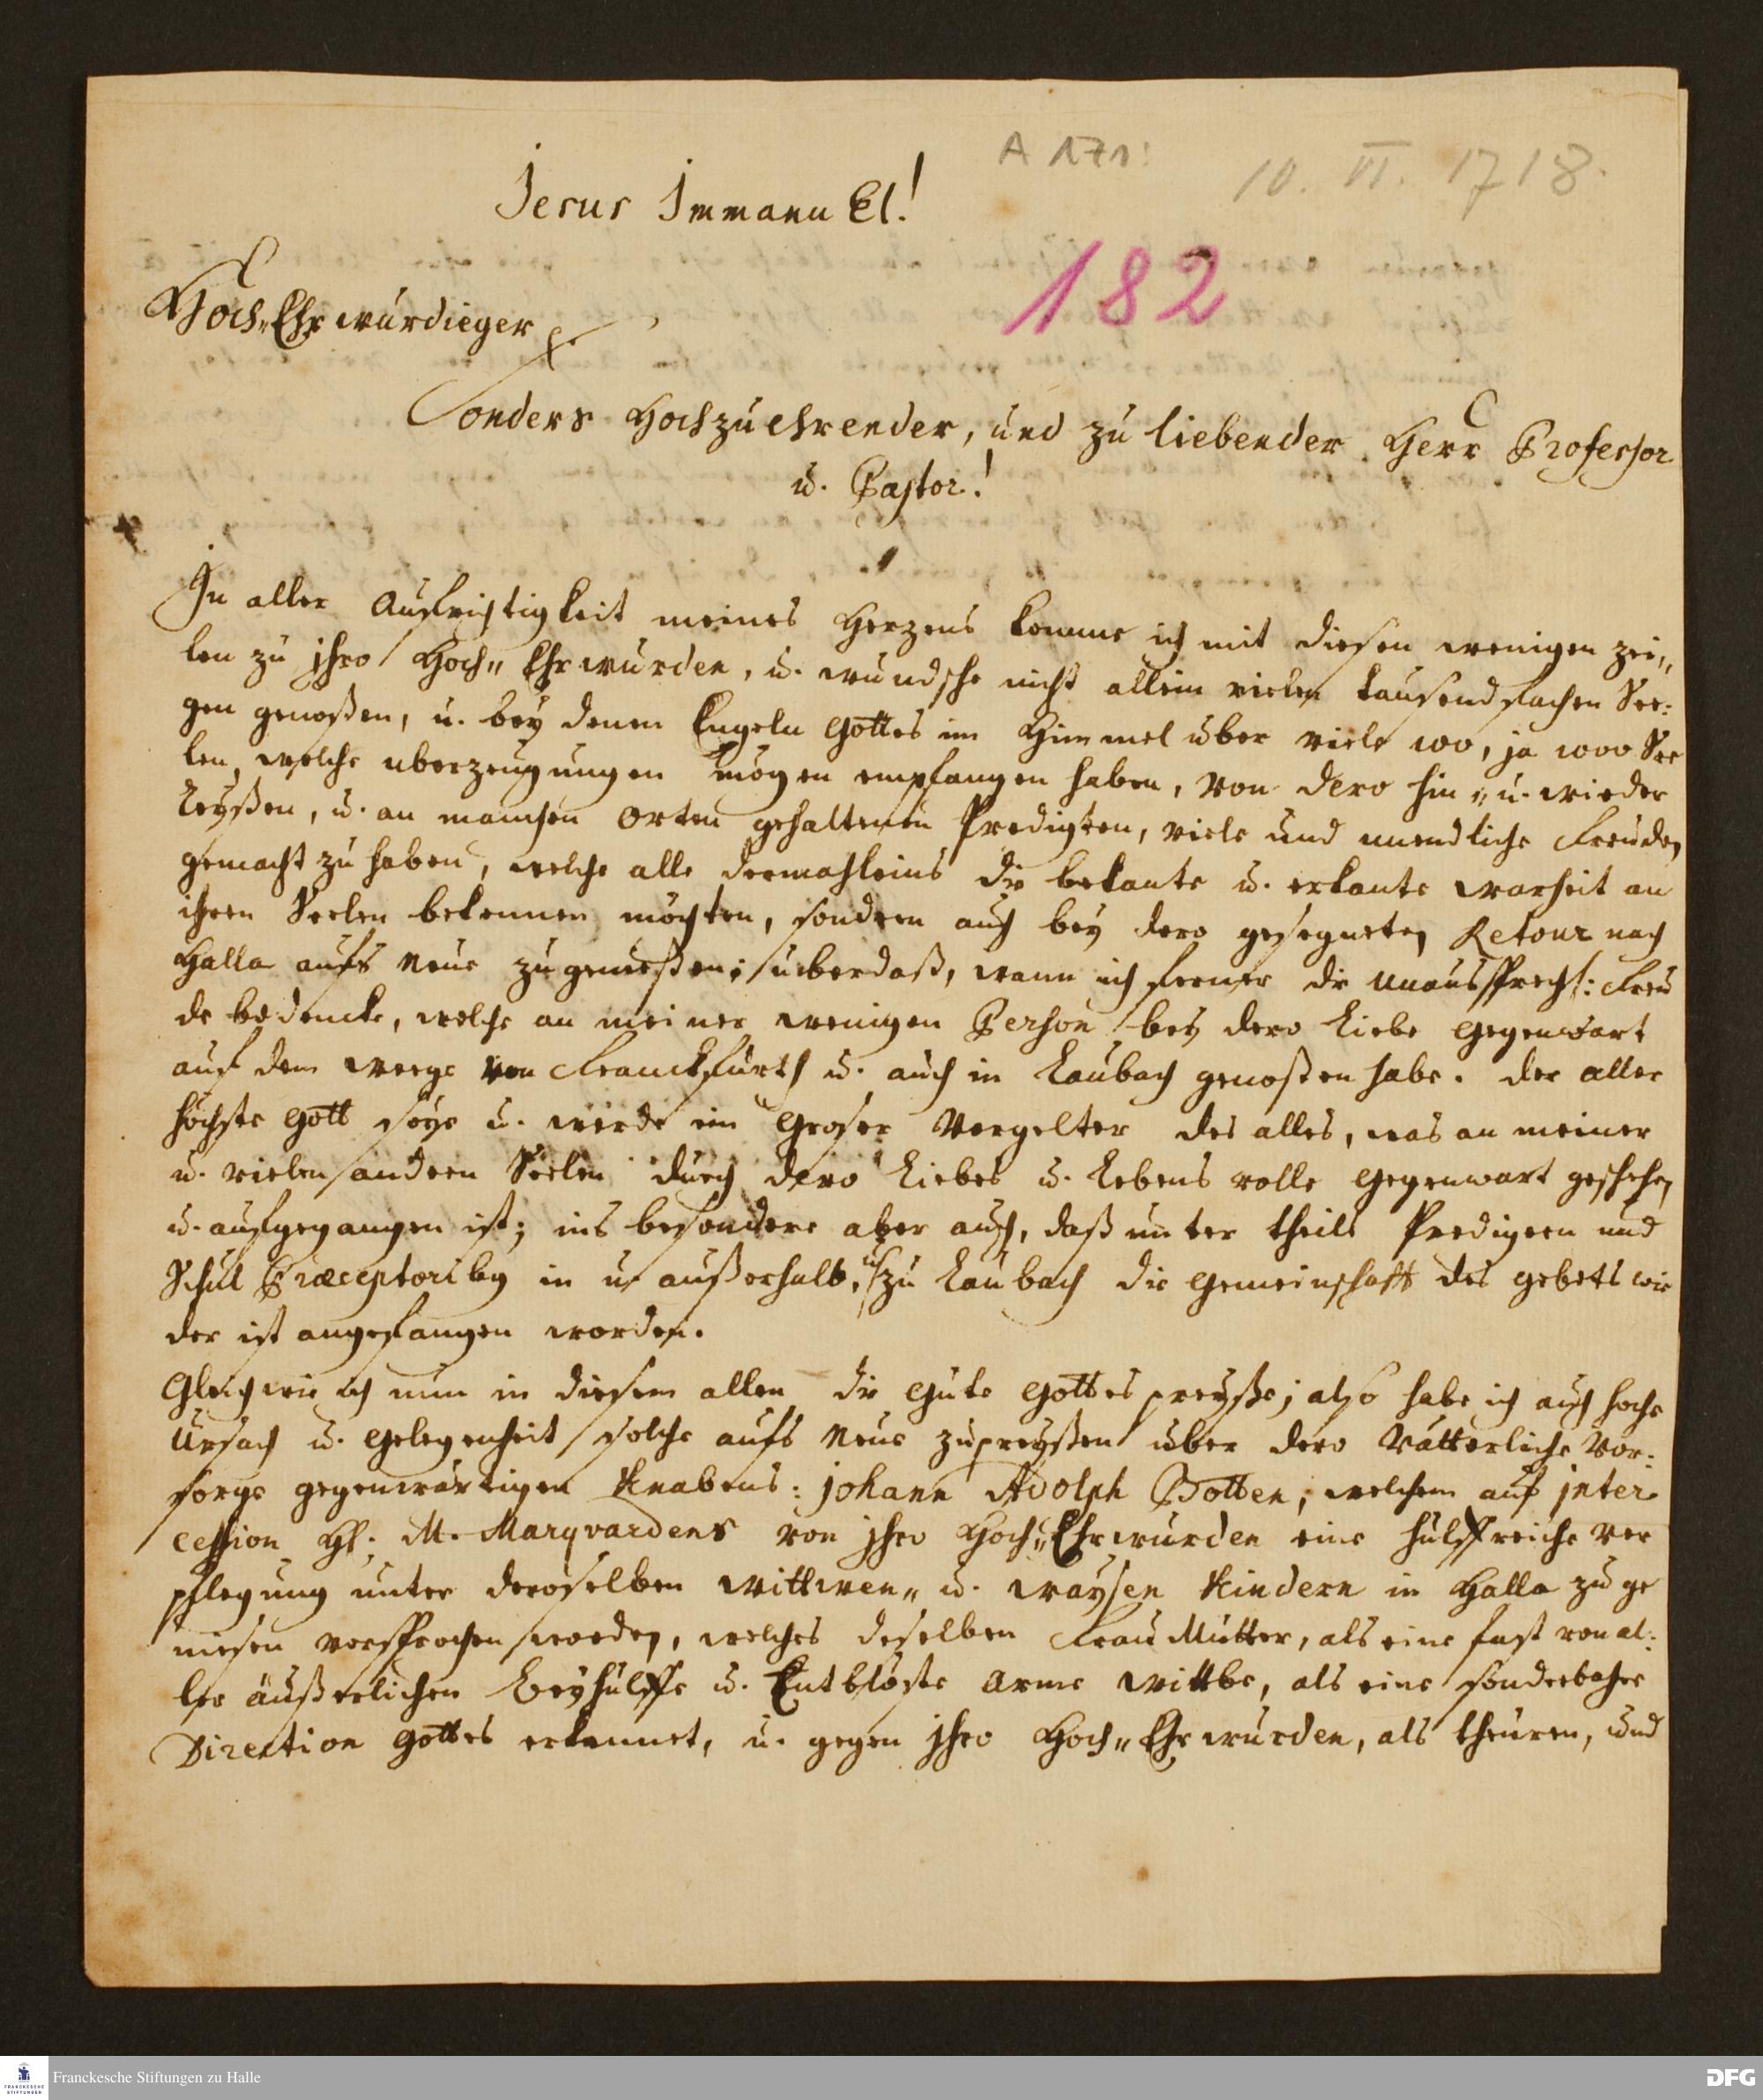 A 171:
10. VI. 1718.
Jesus Immanu El!
182
Hoch„Ehrwürdieger
Sonders Hochzuehrender, und zu liebender Herr Professor
u. Pastor!
In aller Aufrichtigkeit meines Herzens komme ich mit diesen wenigen zei„
len zu jhro Hoch„Ehrwürden, u. wündsche nicht allein vielen tausendfachen See:
gen genoßen, u. bey denen Engeln Gottes im Himmel über viele 100, ja 1000 See
len, welche uberzeugungen mögen empfangen haben, von dero hin„ u. wieder
Reyßen, u. an manchen Orten gehaltenen Predigten, viele und unendliche Freuden
gemacht zu haben, welche alle dermahleins die bekante u. erkante warheit an
ihren Seelen bekennen möchten, sondern auch bey dero gesegneten Retour nach
Halla aufs Neue zugenießen; überdaß, wann ich ferner die unaussprechl: Freu
de bedencke, welche an meiner wenigen Person bey dero Liebe gegenwart
auf dem weege von Franckfurth u. auch in Laubach genoßen habe. der aller
höchste Gott seye u. werde ein Groser Vergelter des alles, was an meiner
u. vielen andern Seelen durch dero Liebes u. Lebens volle gegenwart geschehen
u. aufgegangen ist; ins besondere aber auch, daß unter theils Predigern und
Schul Præceptoriby in u. außerhalb, uf zu Laubach die gemeinschafft des gebets wie
der ist angefangen worden.
Gleich wie ich nun in diesem allen die Güte Gottes preyße; also habe ich auch hohe
Ursach u. gelegenheit solche aufs Neue zupreyßen über dero Vätterliche Vor:
sorge gegenwärtigen Knabens: Johann Adolph Botten, welchem auf jnter
cession Hl: M. Marqvardens von jhro Hoch„Ehrwürden eine hülffreiche ver
pflegung unter deroselben wittwen„ u. waysen Kindern in Halla zu ge
niesen versprochen worden, welches deselben Frau Mutter, als eine fast von al:
ler äußerlichen Beyhülffe u. Entblöste arme wittbe, als eine sonderbahre
Direction Gottes erkennet, u. gegen jhro Hoch„Ehrwürden, als theuren, und
Franckesche Stiftungen zu Halle
DFG